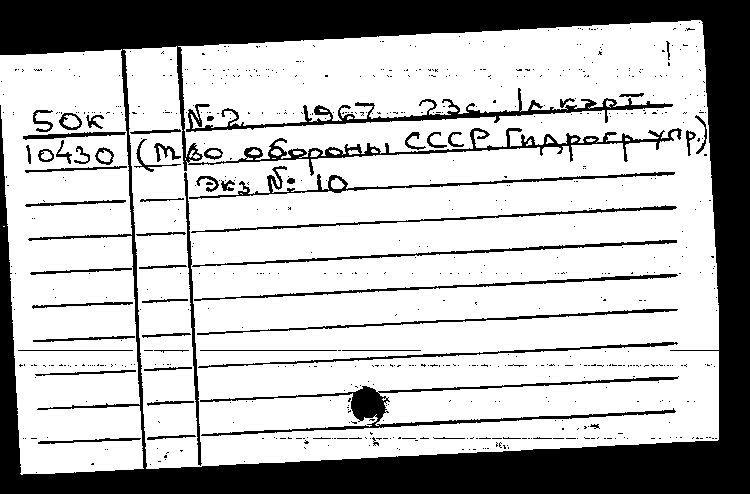 50к № 2 1967 23с; 1л.карт.
10430 (М-во обороны СССР. Гидрогр. упр.)
Экз. № 10